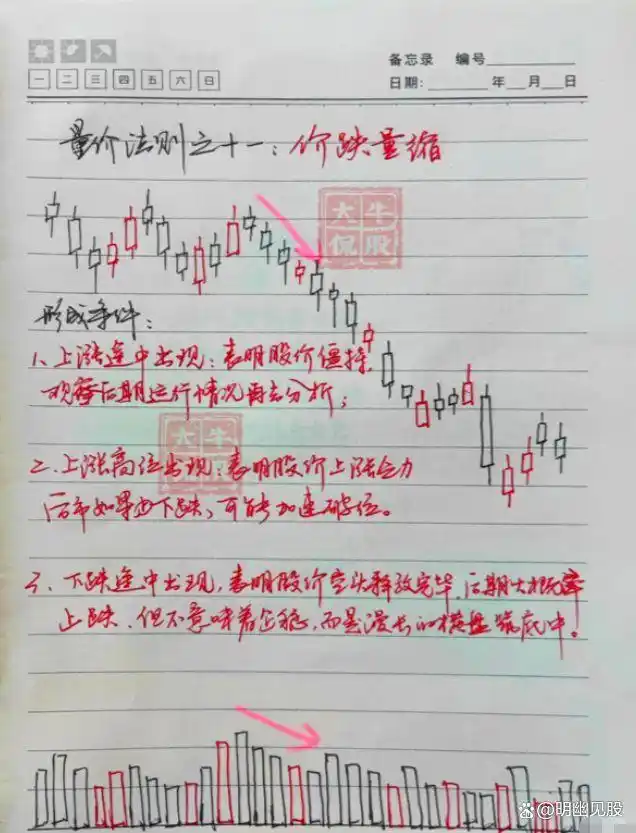 备忘录 编号
一 二 三 四 五 六 日
日期: 年 月 日
量价法则之十一：价跌量缩
大牛
侃股
形成条件：
1、上涨途中出现：表明股价僵持，
观察后期运行情况再去分析；
大牛
侃股
2、上涨高位出现：表明股价上涨乏力
后市如果也下跌，可能加速破位。
3、下跌途中出现，表明股价空头释放完毕，后期大概率
止跌，但不意味着企稳，而是漫长的横盘筑底中！
@明幽见股